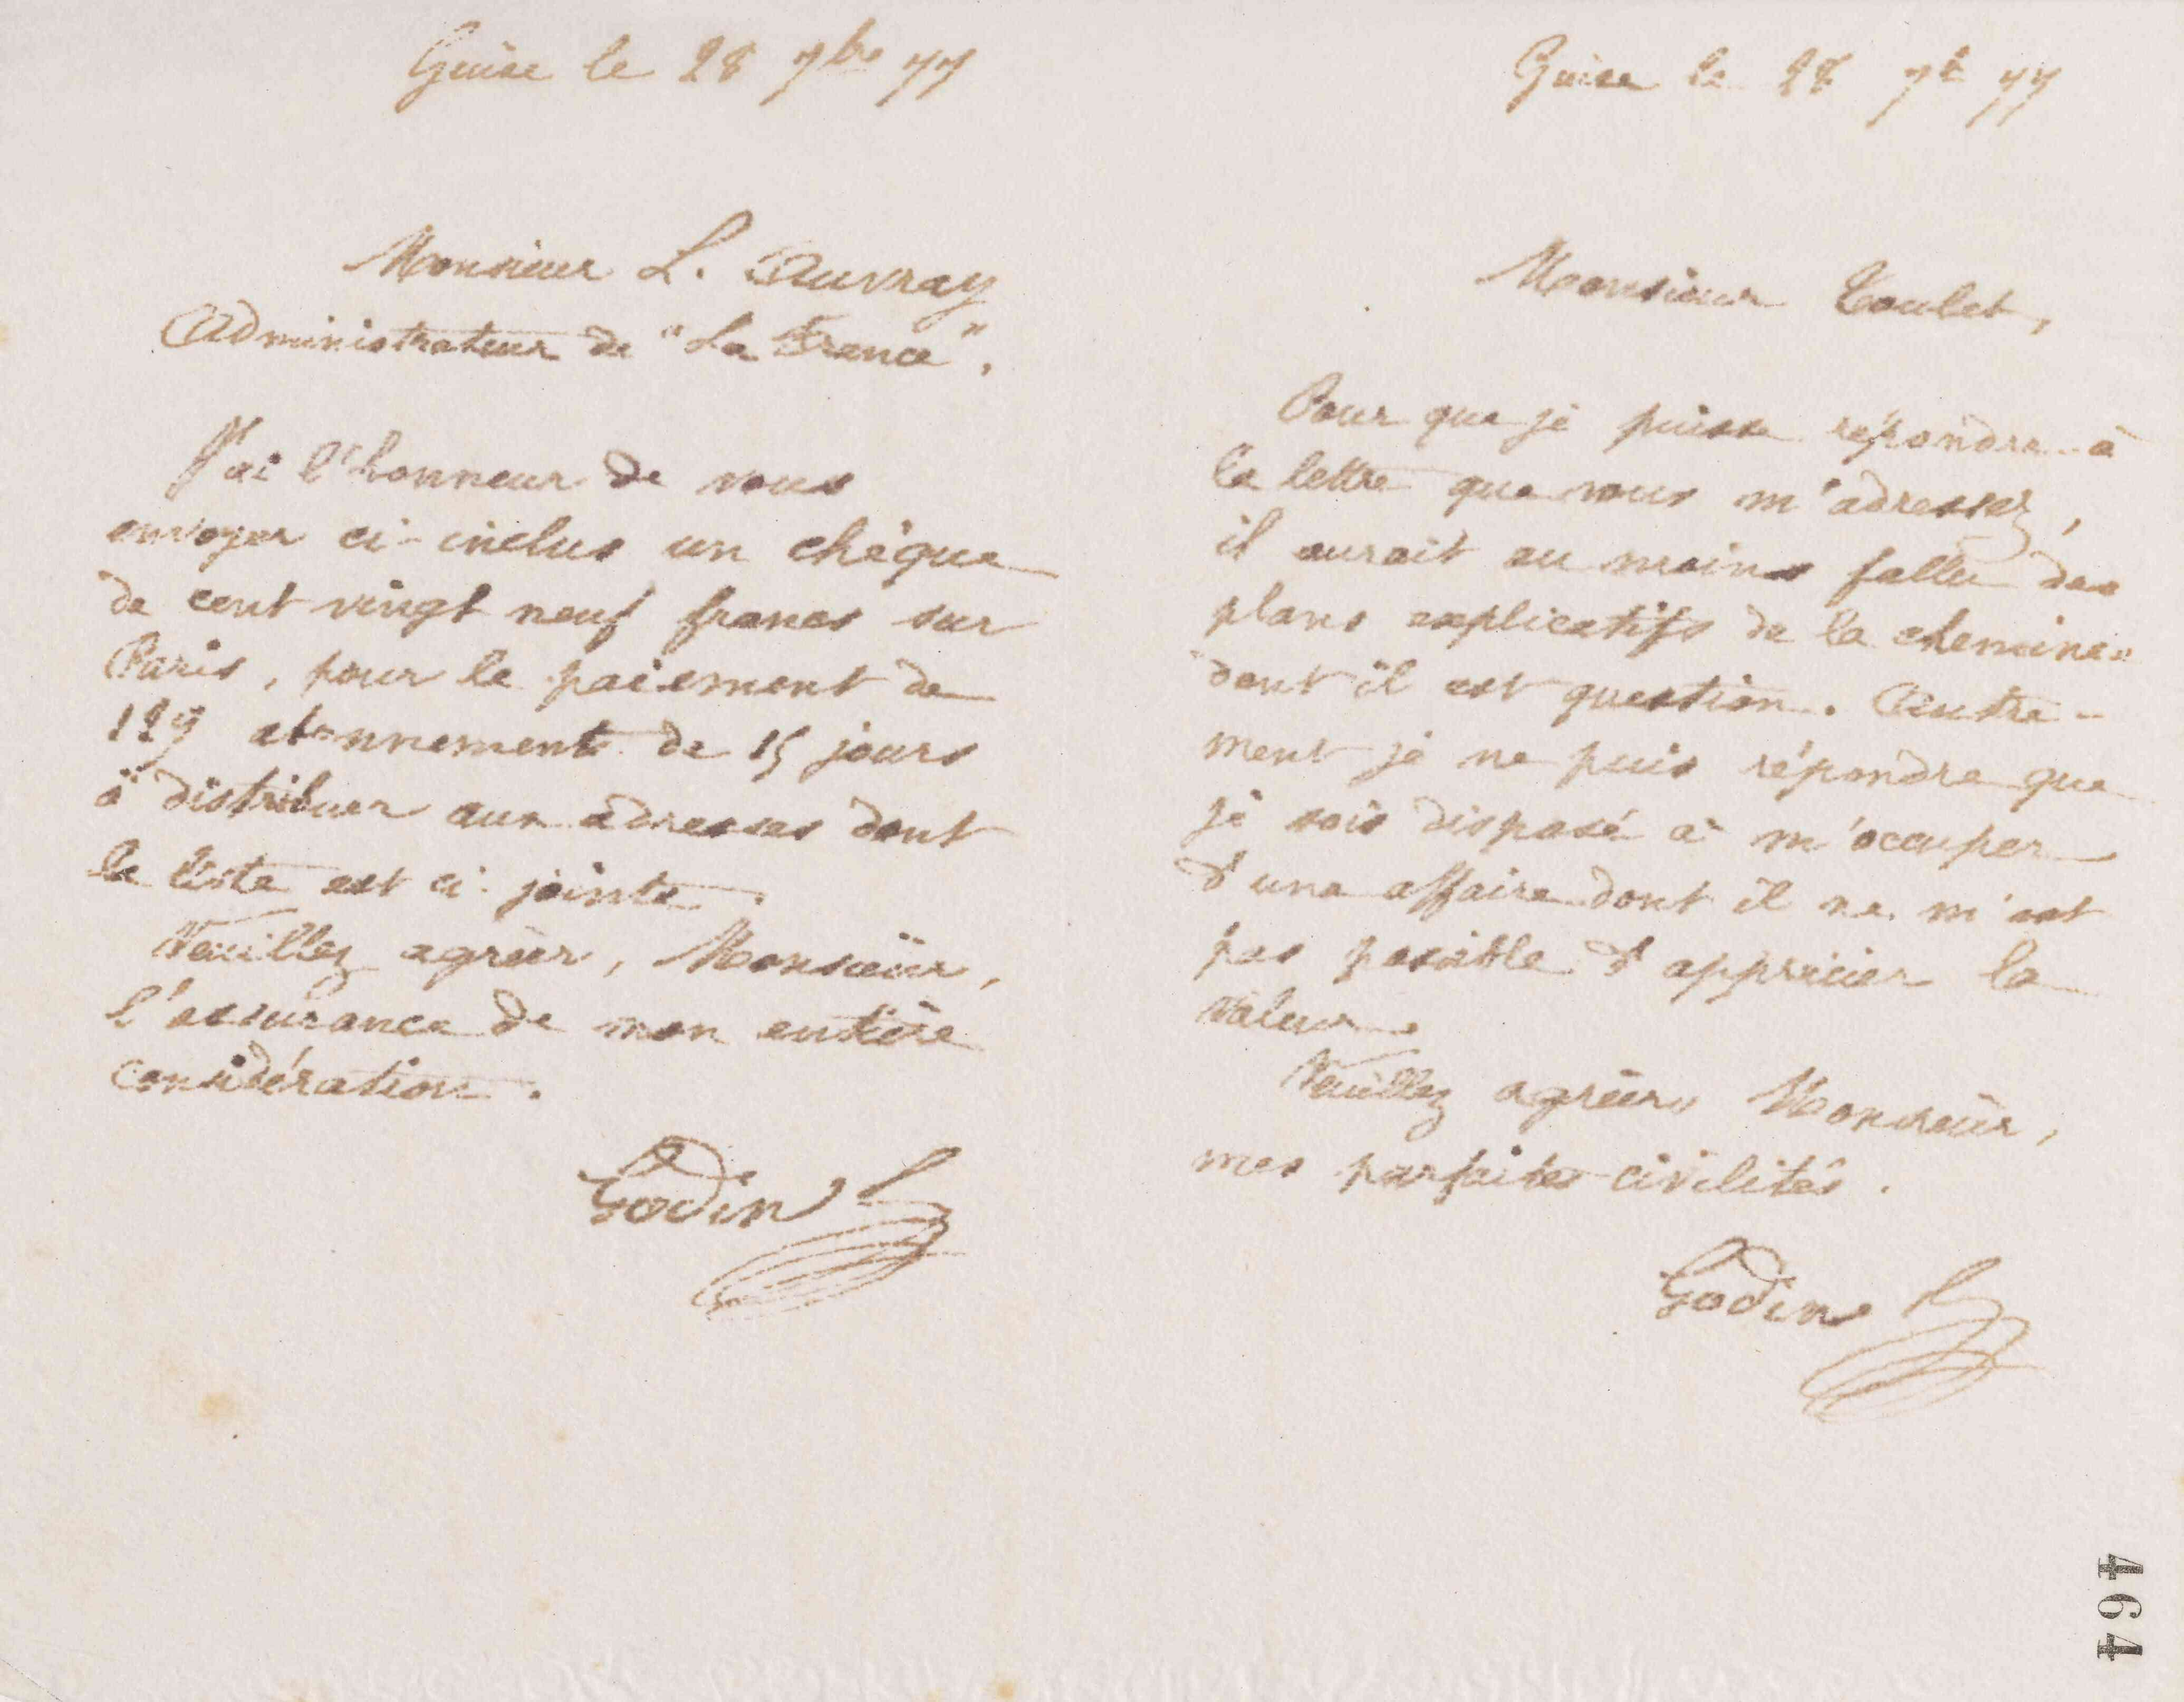 Guise le 28 7bre 77
Monsieur L. Auvray
Administrateur de "La France".
J'ai l'honneur de vous
envoyer ci-inclus un chèque
de cent vingt neuf francs sur
Paris, pour le paiement de
129 abonnements de 15 jours
à distribuer aux adresses dont
la liste est ci-jointe.
Veuillez agréer, Monsieur,
l'assurance de mon entière
considération.
Godin
Guise le 28 7bre 77
Monsieur Toulet,
Pour que je puisse répondre à
la lettre que vous m'adressez,
il aurait au moins fallu des
plans explicatifs de la cheminée
dont il est question. Autre-
ment je ne puis répondre que
je sois disposé à m'occuper
d'une affaire dont il ne m'est
pas possible d'apprécier la
valeur.
Veuillez agréer, Monsieur,
mes parfaites civilités.
Godin
464